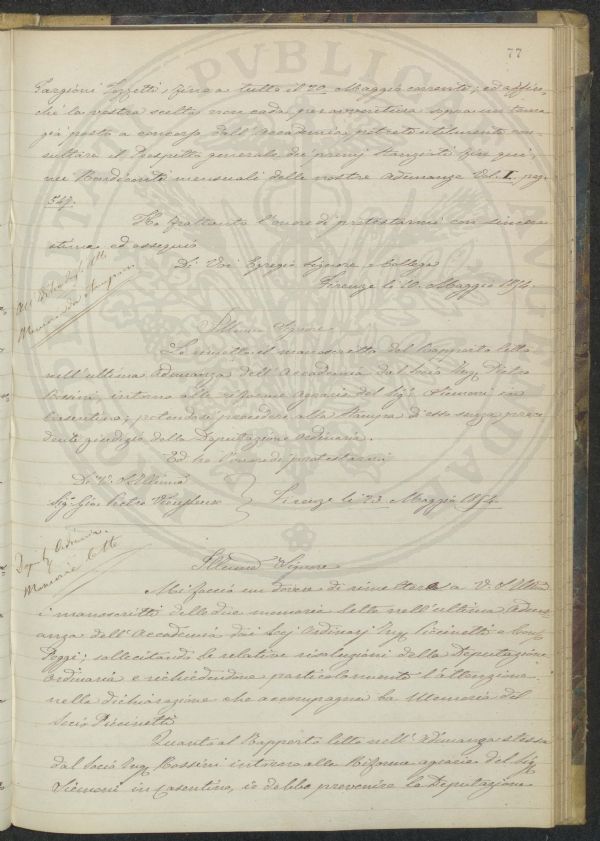 77
Targioni Tozzetti, fino a tutto il 20 Maggio corrente; ed affin-
chè la vostra scelta non cada per avventura sopra un tema
già posto a concorso dall'Accademia potrete utilmente con-
sultare il Prospetto generale dei premj stanziati fin qui,
nei Rendiconti mensuali delle nostre adunanze Vol. I. pag.
547.
Ho frattanto l'onore di protestarmi con sincera
stima ed ossequio
Di Voi Egregio Signore e Collega
Firenze li 10. Maggio 1854.
Illmo Signore
Le rimetto il manoscritto del Rapporto letto
nell'ultima Adunanza dell'Accademia dal Socio Ing. Pietro
Rossini, intorno alle riforme agrarie del Sig. Siemoni in
Casentino; potendosi procedere alla stampa d'esso senza prece-
dente giudizio della Deputazione ordinaria.
Ed ho l'onore di protestarmi
Di V. S. Illma
Sig. Gio. Pietro Vieusseux
Firenze li 23. Maggio 1854
Deput. Ordinaria.
Memorie lette
Illmo Signore
Mi faccio un dovere di rimettere a V. S. Illma
i manoscritti delle due memorie lette nell'ultima Adun-
anza dell'Accademia dai Socj Ordinarj Ing. Piccinetti e
Poggi; sollecitando le relative risoluzioni della Deputazione
ordinaria e richiedendone particolarmente l'attenzione
nella dichiarazione che accompagna la Memoria del
Socio Piccinetti
Quanto al Rapporto letto nell'adunanza stessa
dal Socio Ing. Rossini intorno alla Riforma agraria del Sig.
Siemoni in Casentino, io debbo prevenire la Deputazione